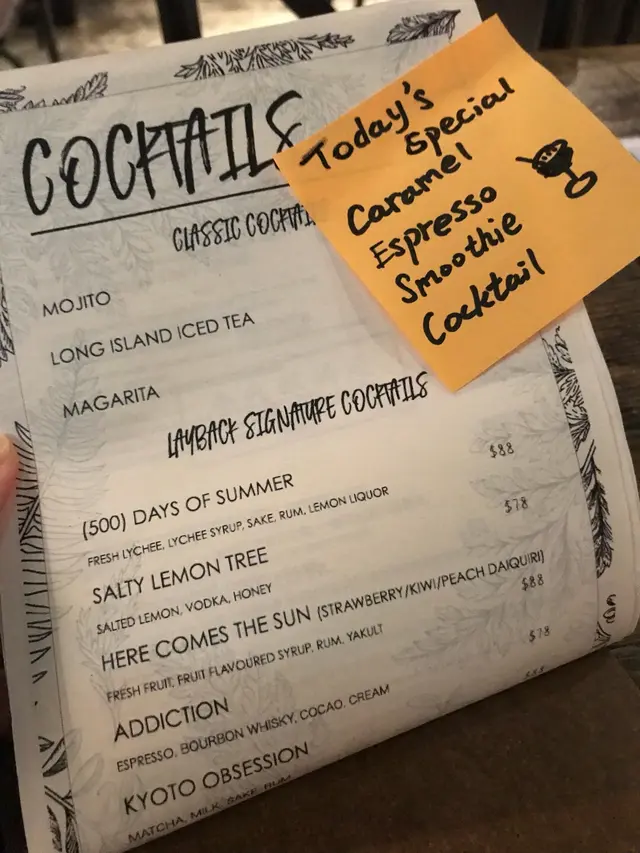 COCKTAILS
CLASSIC COCKTAI
MOJITO
LONG ISLAND ICED TEA
MAGARITA
Today's
Special
Caramel
Espresso
Smoothie
Cocktail
LAYBACK SIGNATURE COCKTAILS
(500) DAYS OF SUMMER $88
FRESH LYCHEE, LYCHEE SYRUP, SAKE, RUM, LEMON LIQUOR
SALTY LEMON TREE $78
SALTED LEMON, VODKA, HONEY
HERE COMES THE SUN (STRAWBERRY/KIWI/PEACH DAIQUIRI) $88
FRESH FRUIT, FRUIT FLAVOURED SYRUP, RUM, YAKULT
ADDICTION $78
ESPRESSO, BOURBON WHISKY, COCAO, CREAM
KYOTO OBSESSION
MATCHA, MILK, SAKE, RUM